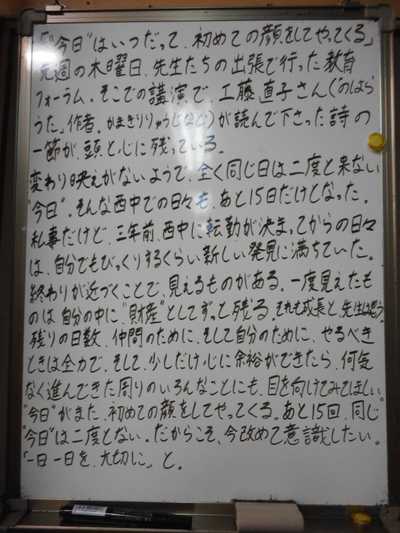 「"今日"はいつだって、初めての顔をしてやってくる」
先週の木曜日、先生たちの出張で行った教育
フォーラム。そこでの講演で、工藤直子さん(「のはら
うた」作者。かまきりりゅうじなど)が読んで下さった詩の
一節が、頭と心に残っている。
変わり映えがないようで、全く同じ日は二度と来ない
"今日"。そんな西中での日々も、あと15日だけとなった。
私事だけど、三年前、西中に転勤が決まってからの日々
は、自分でもびっくりするくらい新しい発見に満ちていた。
終わりが近づくことで、見えるものがある。一度見えたも
のは自分の中に"財産"としてずっと残る。それも成長と、先生は思う。
残りの日数、仲間のために、そして自分のために、やるべき
ときは全力で、そして、少しだけ心に余裕ができたら、何気
なく進んできた周りのいろんなことにも、目を向けてみてほしい。
"今日"がまた、初めての顔をしてやってくる。あと15回、同じ
"今日"は二度とない。だからこそ、今改めて意識したい。
「一日一日を、大切に」と。